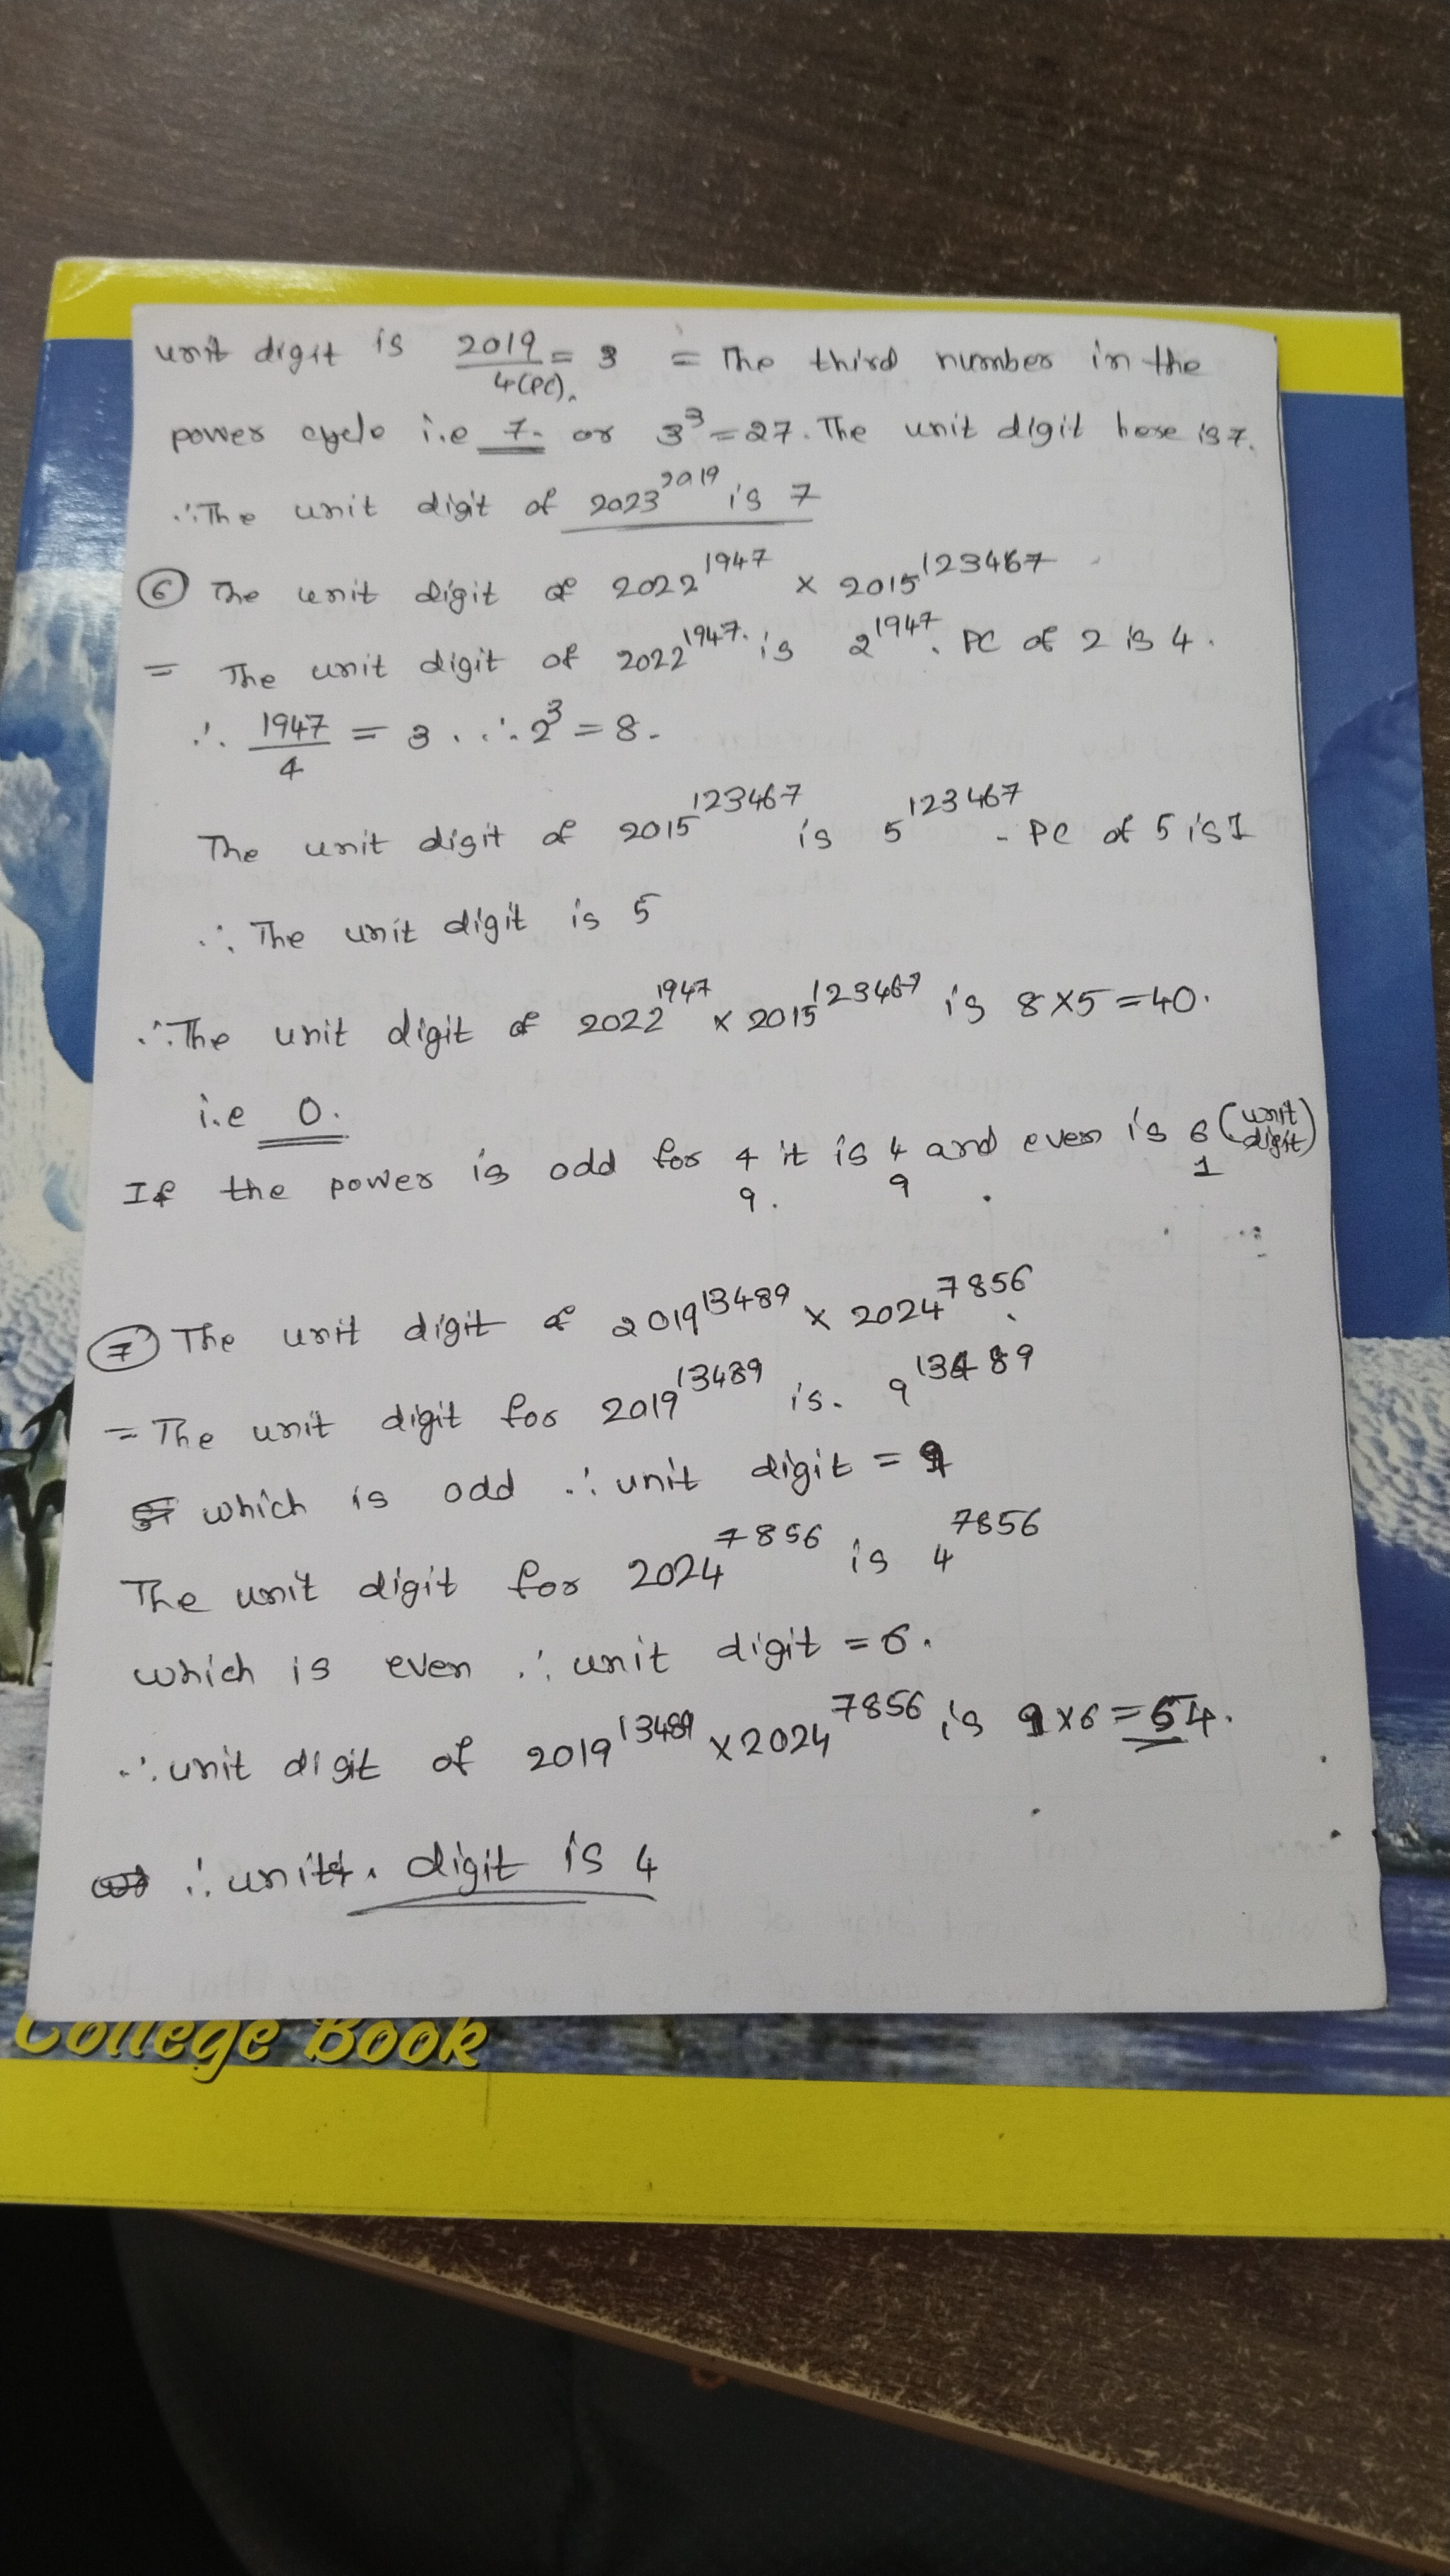 unit digit is 2019/4(PC). = 3 = The third number in the
power cycle i.e 7. or 3^3 = 27. The unit digit here is 7.
∴ The unit digit of 2023^2019 is 7
⑥ The unit digit of 2022^1947 × 2015^123467
= The unit digit of 2022^1947. is 2^1947. PC of 2 is 4.
∴ 1947/4 = 3. ∴ 2^3 = 8.
The unit digit of 2015^123467 is 5^123467 - PC of 5 is 1
∴ The unit digit is 5
∴ The unit digit of 2022^1947 × 2015^123467 is 8×5=40.
i.e 0.
If the power is odd for 4 it is 4 and even is 6 (unit digit)
9. 9 1
⑦ The unit digit of 2019^13489 × 2024^7856
= The unit digit for 2019^13489 is. 9^13489
which is odd ∴ unit digit = 9
The unit digit for 2024^7856 is 4^7856
which is even ∴ unit digit = 6.
∴ unit digit of 2019^13489 × 2024^7856 is 9×6=54.
∴ unit. digit is 4
College Book